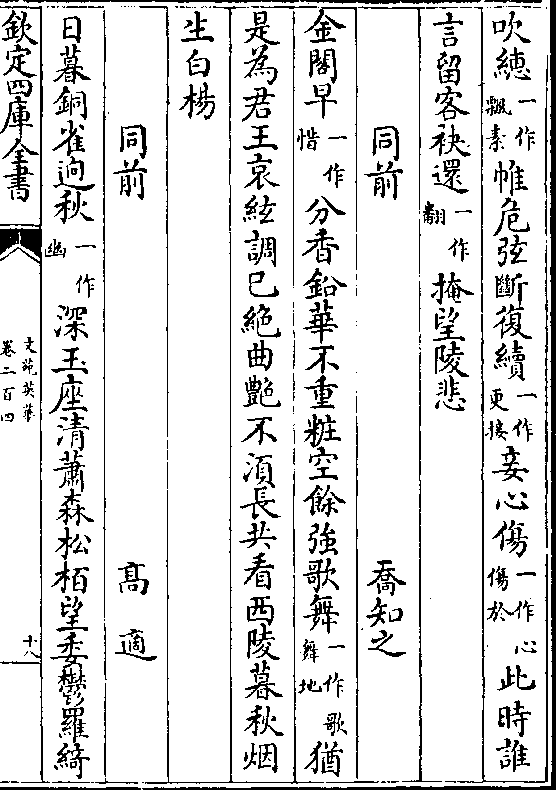 吹繐一作飄素帷危弦斷復續一作更接妾心傷一作心傷於此時誰
言留客袂還一作翻掩望陵悲
同前 喬知之
金閣早一作惜分香鉛華不重粧空餘強歌舞一作歌舞地猶
是為君王哀絃調已絶曲艶不湏長共看西陵暮秋烟
生白楊
同前 髙適
日暮銅雀逈秋一作幽深玉座清蕭森松栢望委鬱羅綺
欽定四庫全書
文苑英華
卷二百四
十八